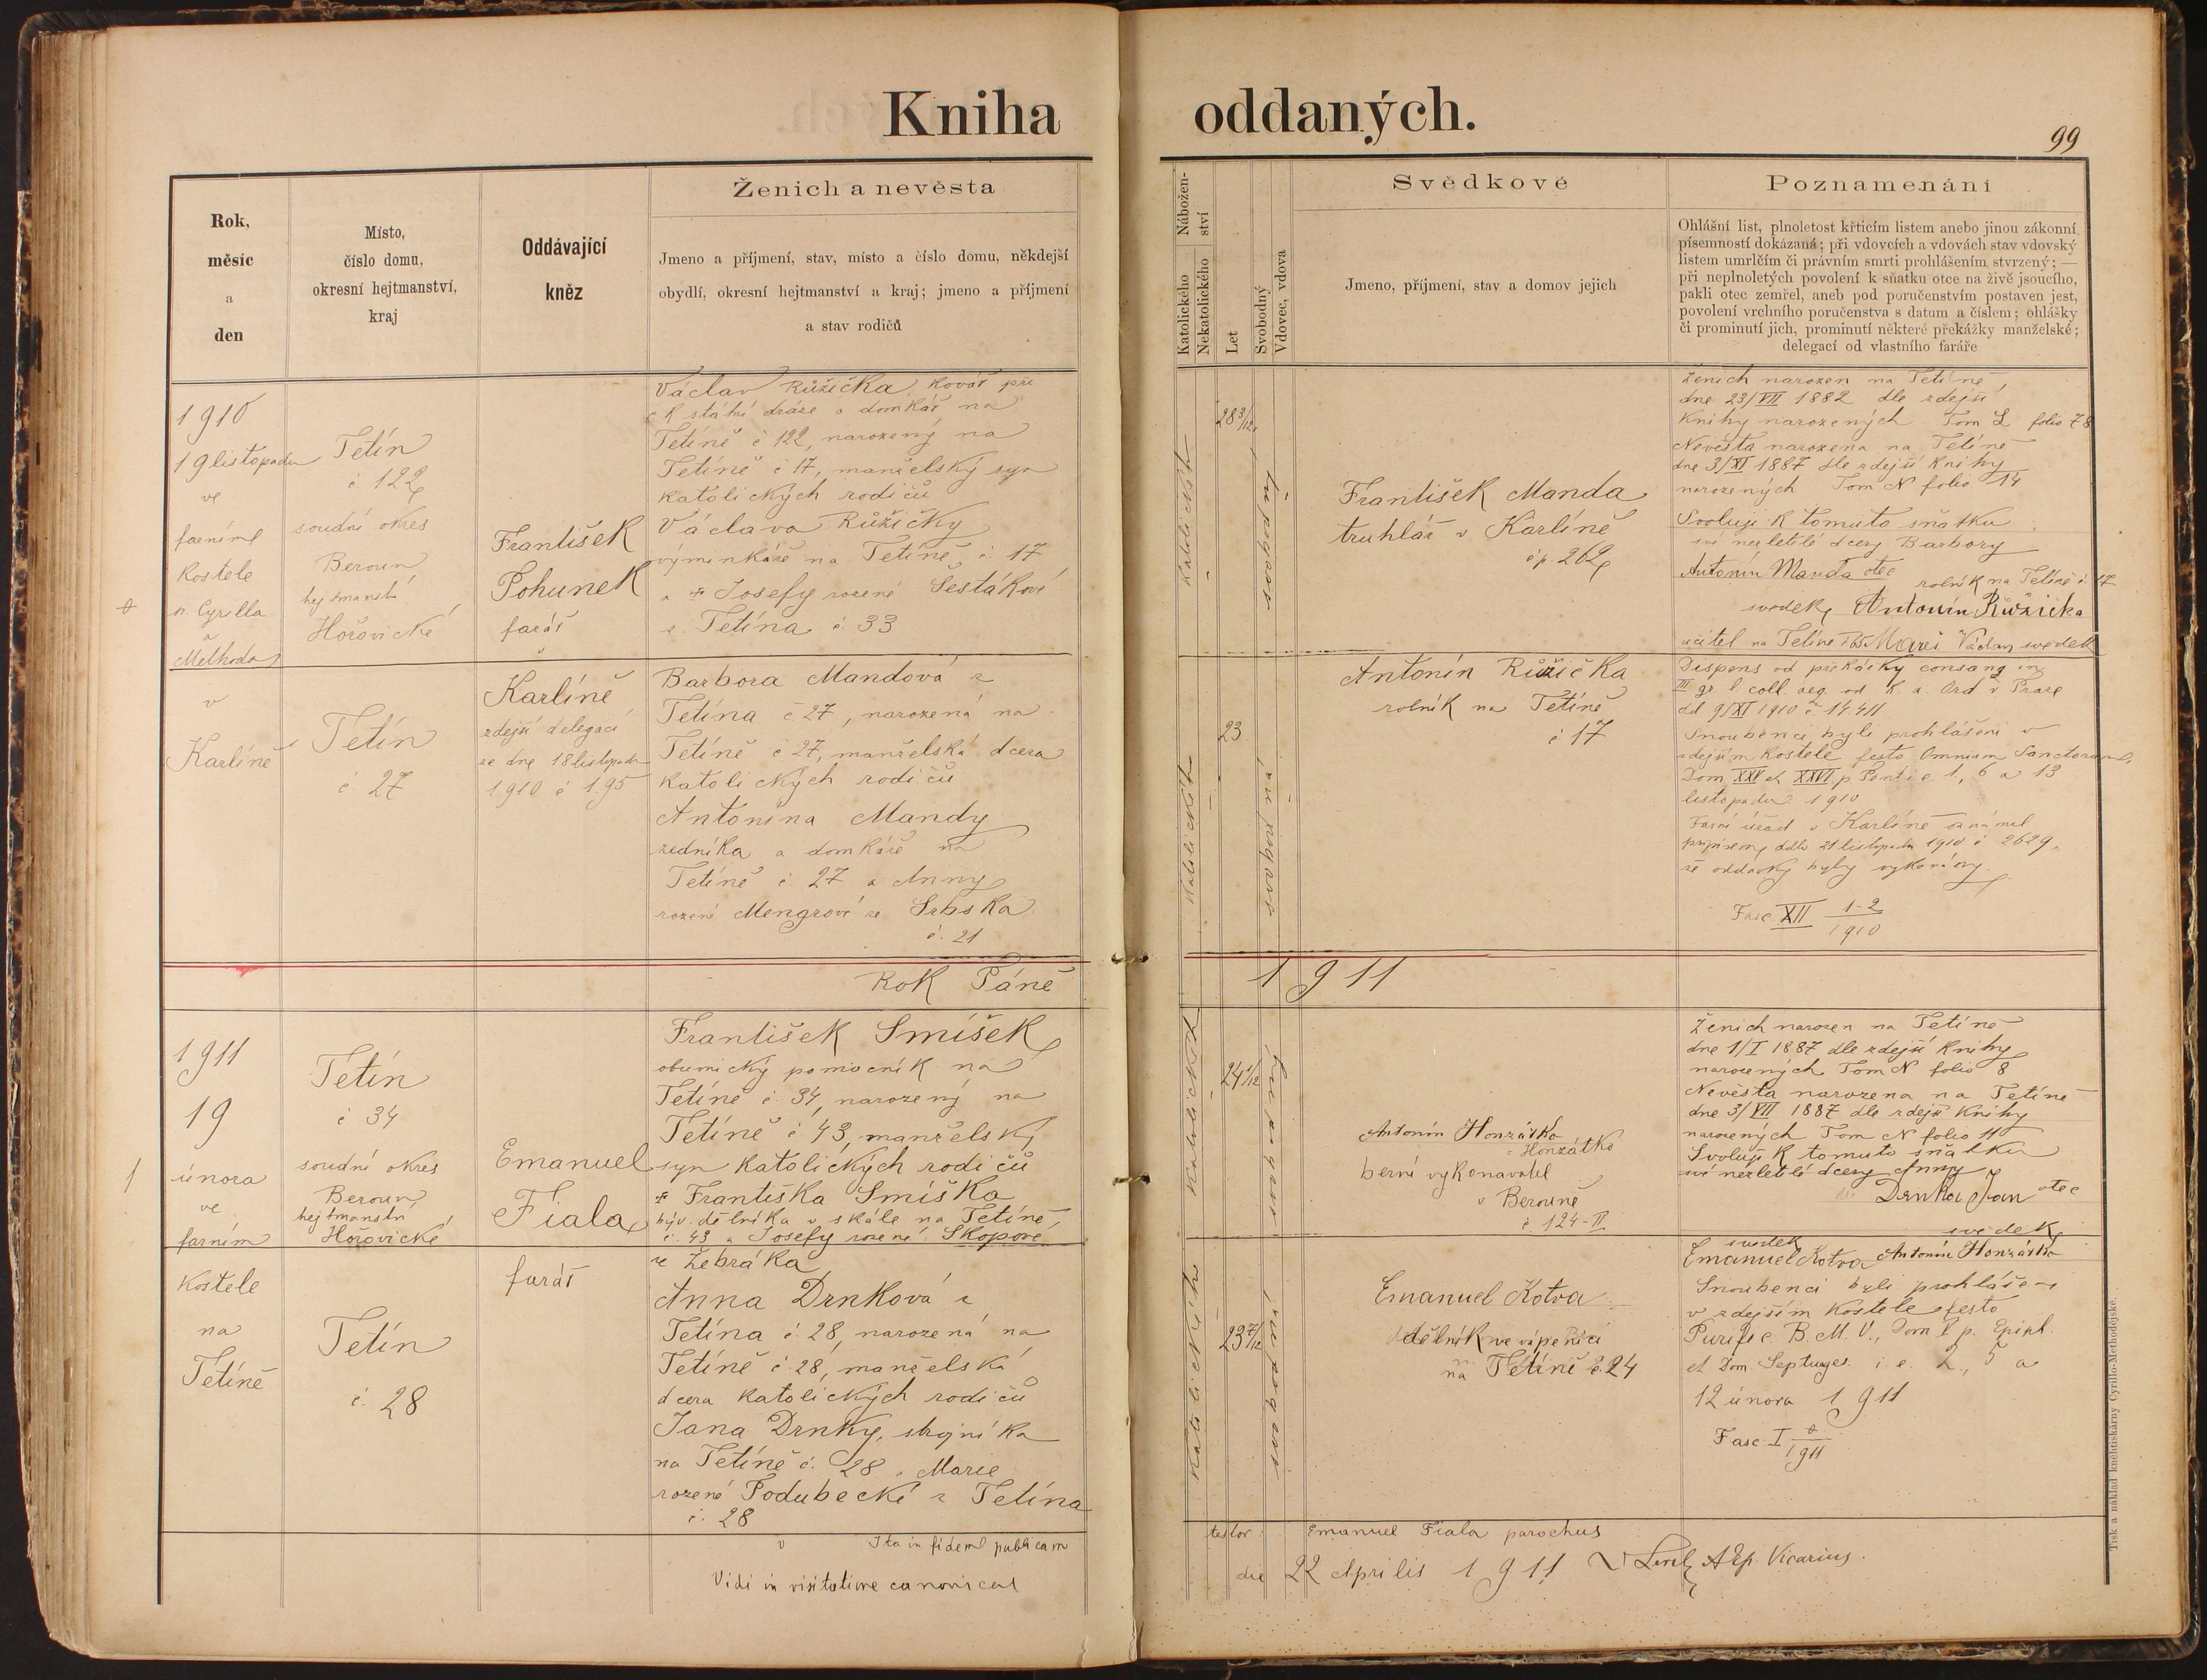 Kniha oddaných.
99
Rok,
měsíc
a
den
Místo,
číslo domu,
okresní hejtmanství,
kraj
Oddávající
kněz
Ženich a nevěsta
Jmeno a příjmení, stav, místo a číslo domu, někdejší
obydlí, okresní hejtmanství a kraj; jmeno a příjmení
a stav rodičů
Nábožen-
ství
Katolického
Nekatolického
Let
Svobodný
Vdovec, vdova
Svědkové
Jmeno, příjmení, stav a domov jejich
Poznamenání
Ohlášní list, plnoletost křticím listem anebo jinou zákonní
písemností dokázaná; při vdovcích a vdovách stav vdovský
listem umrlčím či právním smrti prohlášením stvrzený; —
při neplnoletých povolení k sňatku otce na živě jsoucího,
pakli otec zemřel, aneb pod poručenstvím postaven jest,
povolení vrchního poručenstva s datum a číslem; ohlášky
či prominutí jich, prominutí některé překážky manželské;
delegací od vlastního faráře
1910
19 listopadu
ve
farním
kostele
sv. Cyrilla
a
Methoda
v
Karlíně
Tetín
č 122
soudní okres
Beroun
hejtmanství
Hořovické
Tetín
č 27
František
Pohunek
farář
v
Karlíně
zdejší delegací
ze dne 18 listopadu
1910 č 195
Václav Růžička, kovář při
c k státní dráze a domkář na
Tetíně č 122, narozený na
Tetíně č 17, manželský syn
katolických rodičů
Václava Růžičky
výminkáře na Tetíně č. 17
a † Josefy rozené Šestákové
z Tetína č. 33
Barbora Mandová z
Tetína č 27, narozená na
Tetíně č 27, manželská dcera
katolických rodičů
Antonína Mandy
zedníka a domkáře na
Tetíně č. 27 a Anny
rozené Mengrové ze Srbska
č. 21
katolického
28 3/12
svobodný
katolického
23
svobodná
František Manda
truhlář v Karlíně
čp. 262
Antonín Růžička
rolník na Tetíně
č 17
Ženich narozen na Tetíně,
dne 23/VII 1882 dle zdejší
knihy narozených Tom L folio 78
Nevěsta narozena na Tetíně
dne 3/XI 1887 dle zdejší knihy
narozených Tom N folio 14
Svoluji k tomuto sňatku
své nezletilé dcery Barbory
Antonín Manda otec
rolník na Tetíně č 17
svědek, Antonín Růžička
učitel na Tetíně Václav svědek
Dispens od překážky consang in
III gr l coll. aeq. od k. a. Ord v Praze
dd 9/XI 1910 č. 14411
Snoubenci byli prohlášeni v
zdejším kostele festo Omnium Sanctorum,
Dom XXV et XXVI p Pent i.e. 1, 6 a 13
listopadu 1910
Farní úřad v Karlíně oznámil
přípisem ddto 21 listopadu 1910 č 2629,
že oddavky byly vykonány.
Fasc XII 1-2/1910
Rok Páně 1911
1
1911
19
února
ve
farním
kostele
na
Tetíně
Tetín
č 34
soudní okres
Beroun
hejtmanství
Hořovické
Tetín
č. 28
Emanuel
Fiala
farář
František Smíšek
obuvnický pomocník na
Tetíně č. 34, narozený na
Tetíně č. 43, manželský
syn katolických rodičů
† Františka Smíška
býv. dělníka v skále na Tetíně,
č. 43 a Josefy rozené Skopové
ze Žebráka
Anna Drnková z
Tetína č. 28, narozená na
Tetíně č 28, manželská
dcera katolických rodičů
Jana Drnky, strojníka
na Tetíně č. 28 a Marie
rozené Podubecké z Tetína
č. 28
katolického
24 1/12
svobodný
katolického
23 7/12
svobodná
Antonín Honzátko
Honzátko
berní vykonavatel
v Berouně
č 124-II
Emanuel Kotva
dělník ve vápenici
na Tetíně č. 24
Ženich narozen na Tetíně
dne 1/I 1887 dle zdejší knihy
narozených Tom N folio 8
Nevěsta narozena na Tetíně
dne 3/VII 1887 dle zdejší knihy
narozených Tom N folio 11
Svoluji k tomuto sňatku
své nezletilé dcery Anny
Drnka Jan otec
svědek
svědek
Emanuel Kotva Antonín Honzátko
Snoubenci byli prohlášeni
v zdejším kostele festo
Purific. B. M. V., Dom V p. Epiph.
et Dom. Septuages. i. e. 2, 5 a
12 února 1911
Fasc I /1911
Ita in fidem publicam testor: Emanuel Fiala parochus
Vidi in visitatione canonica die 22 Aprilis 1911 Vicarius.
Tisk a náklad kněhtiskárny Cyrillo-Methodějské.